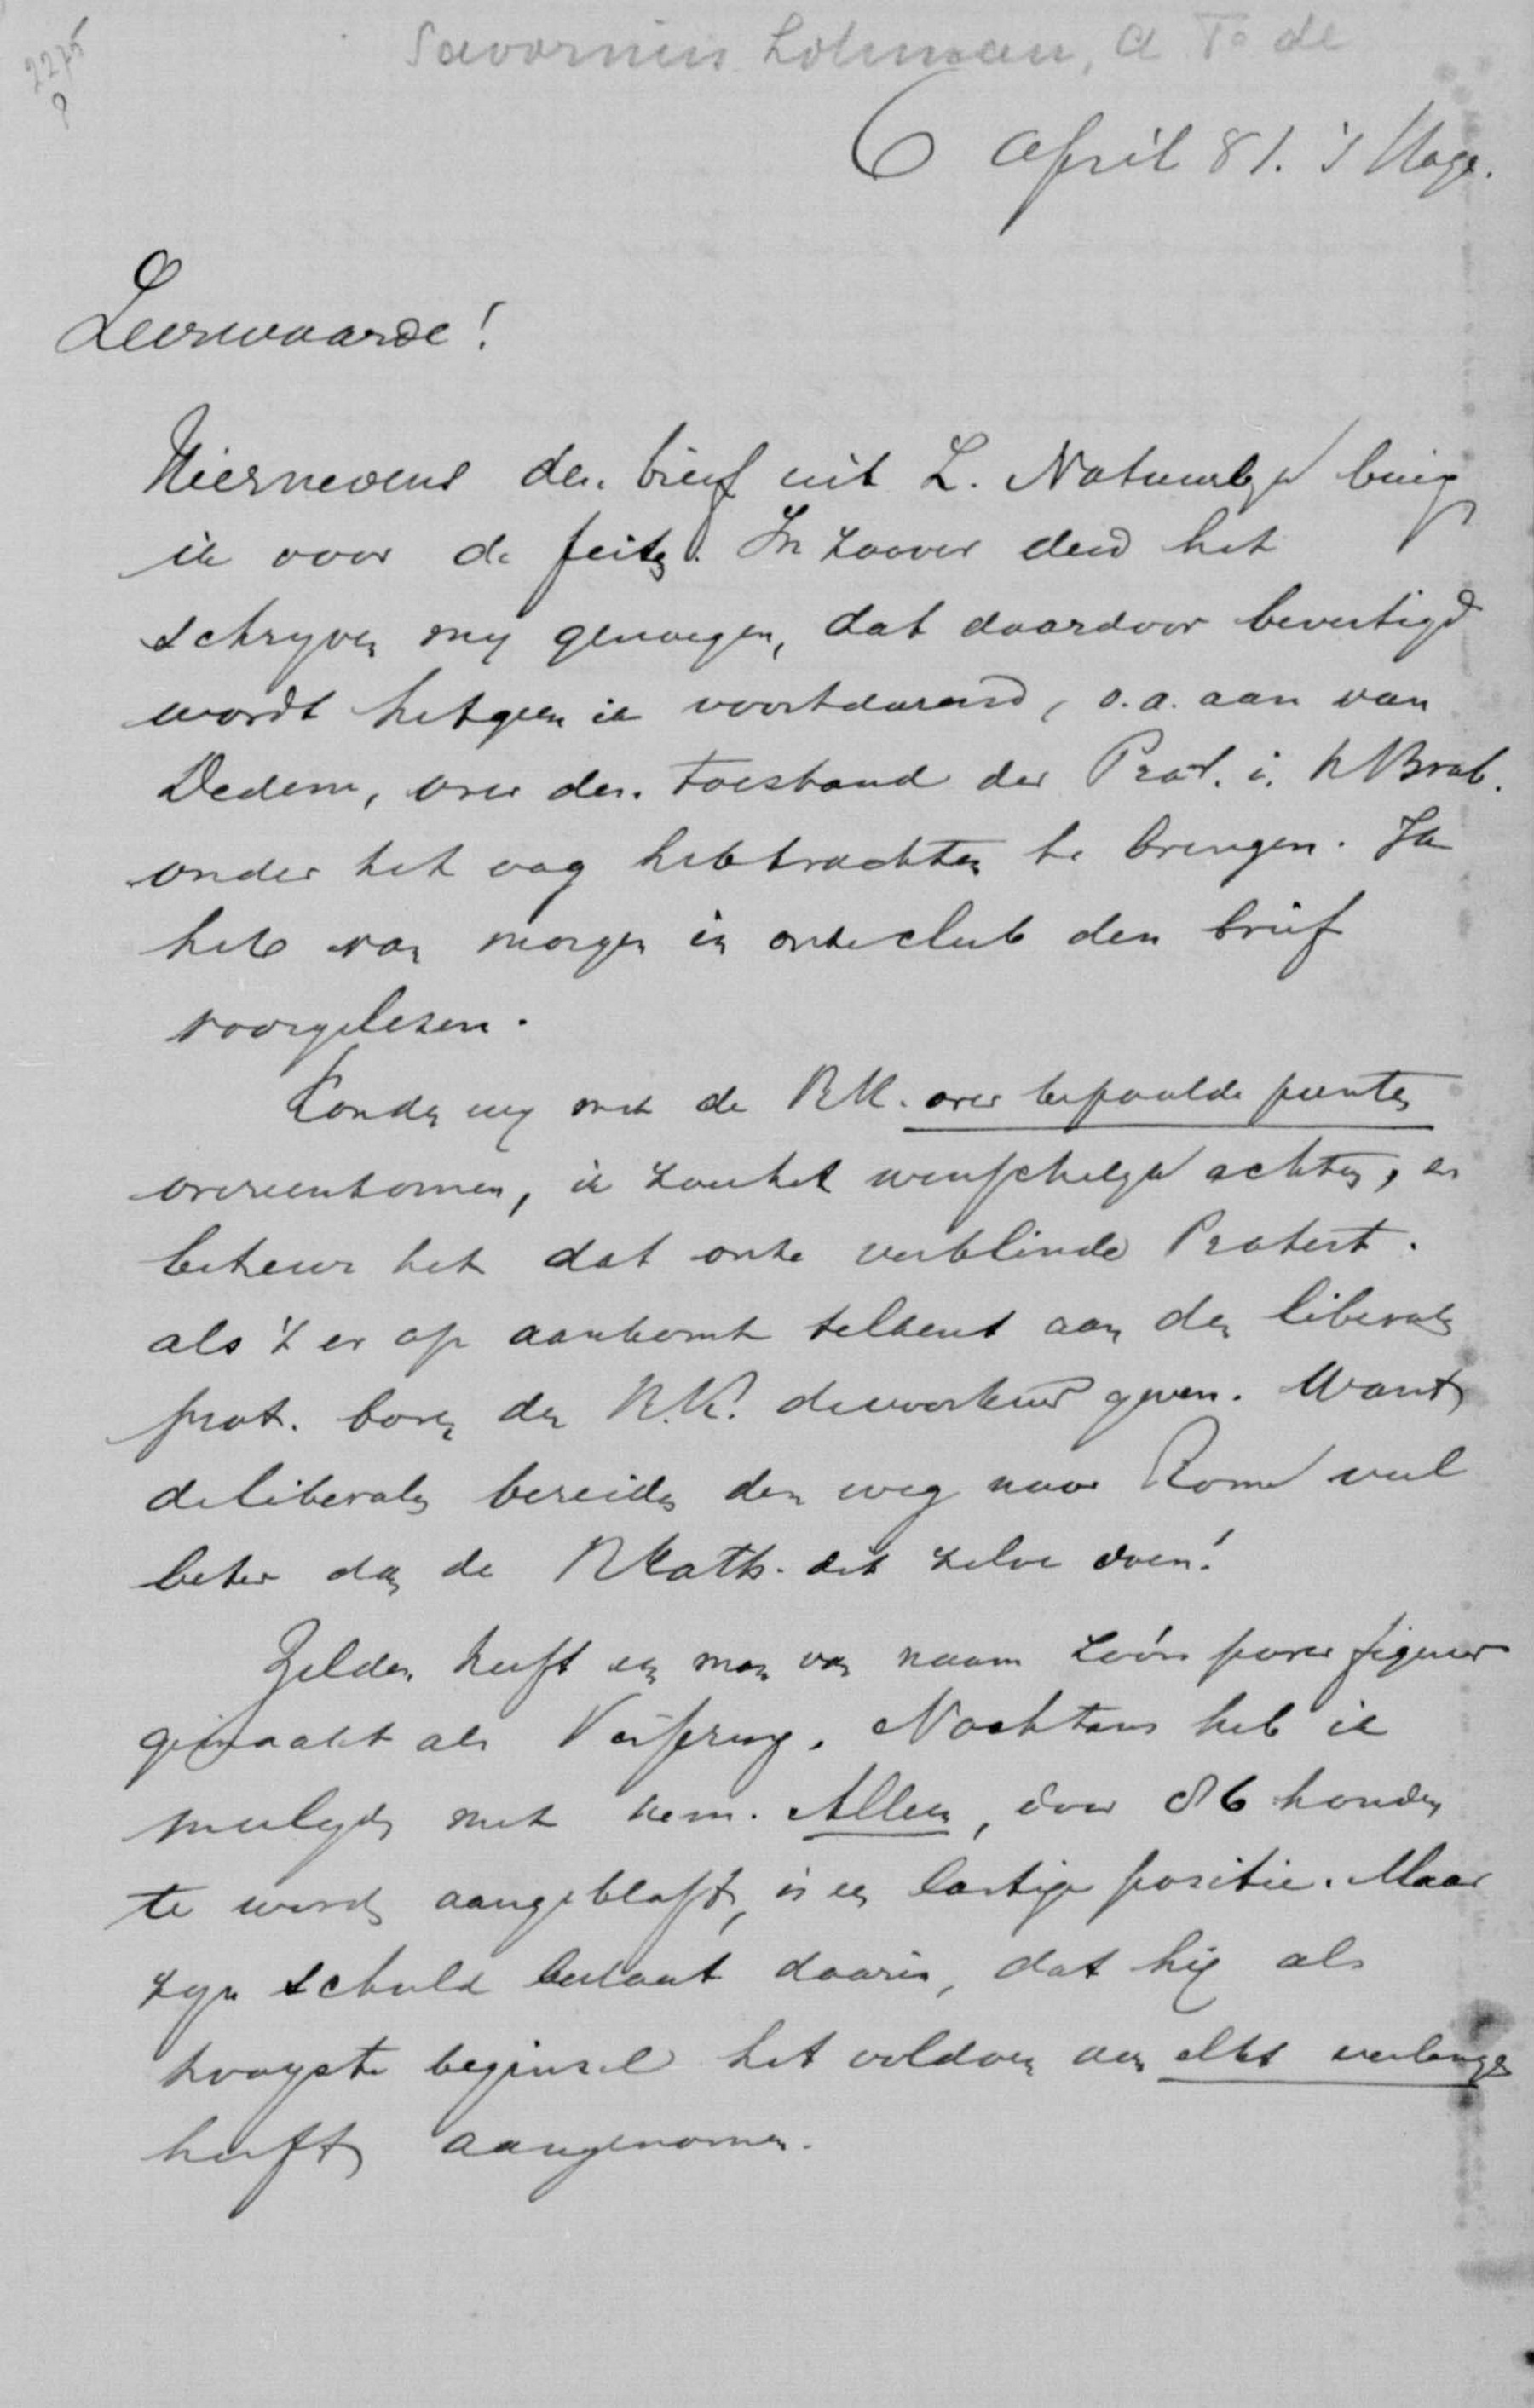 2275
Savornin Lohman, A F. de
6 April 81. 's Hage.
Zeerwaarde!
Hiernevens den brief uit L. Natuurlyk buig
ik voor de feiten. In zoover deed het
schryven my genoegen, dat daardoor bevestigd
wordt hetgeen ik voortdurend, o.a. aan van
Dedem, over den toestand der Prot. i. N Brab.
onder het oog heb trachten te brengen. Ik
heb van morgen in onze club den brief
voorgelezen.
Konden wy met de RK. over bepaalde punten
overeenkomen, ik zou het wenschelyk achten, en
betreur het dat onze verblinde Protest.
als 't er op aankomt telkens aan den liberalen
prot. boven den R.K. de voorkeur geven. Want
de liberalen bereiden den weg naar Rome veel
beter dan de RKath. dit zelve doen!
Zelden heeft een man van naam zóó'n figuur
gemaakt als Nochtans heb ik
medelyden met hem. Alleen, door 86 honden
te worden aangeblaft, is een lastige positie. Maar
zyn schuld bestaat daarin, dat hy als
hoogste beginsel het voldoen aan elks verlangen
heeft aangenomen.